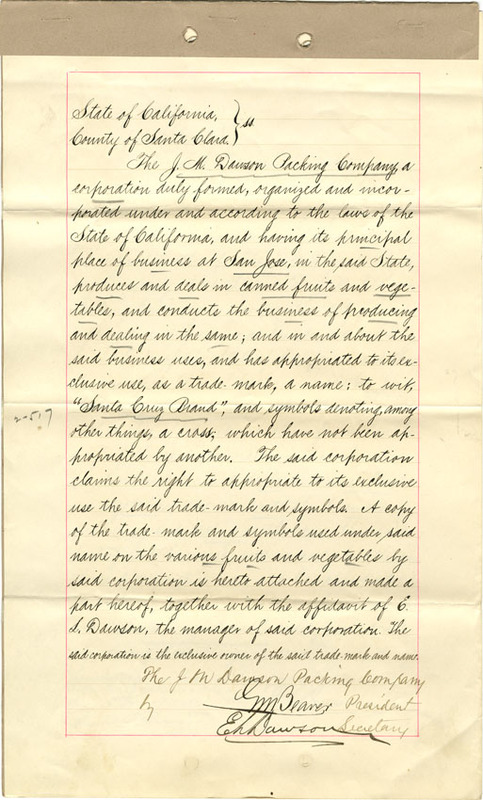 State of California,
County of Santa Clara. } ss
The J. M. Dawson Packing Company, a
corporation duly formed, organized and incor-
porated under and according to the laws of the
State of California, and having its principal
place of business at San Jose, in the said State,
produces and deals in canned fruits and vege-
tables, and conducts the business of producing
and dealing in the same; and in and about the
said business uses, and has appropriated to its ex-
clusive use, as a trade-mark, a name: to wit,
"Santa Cruz Brand", and symbols denoting, among
other things, a cross, which have not been ap-
propriated by another. The said corporation
claims the right to appropriate to its exclusive
use the said trade-mark and symbols. A copy
of the trade-mark and symbols used under said
name on the various fruits and vegetables by
said corporation is hereto attached and made a
part hereof, together with the affidavit of E.
L. Dawson, the manager of said corporation. The
said corporation is the exclusive owner of the said trade-mark and name.
The J M Dawson Packing Company
by G M Beaver President
E L Dawson Secretary